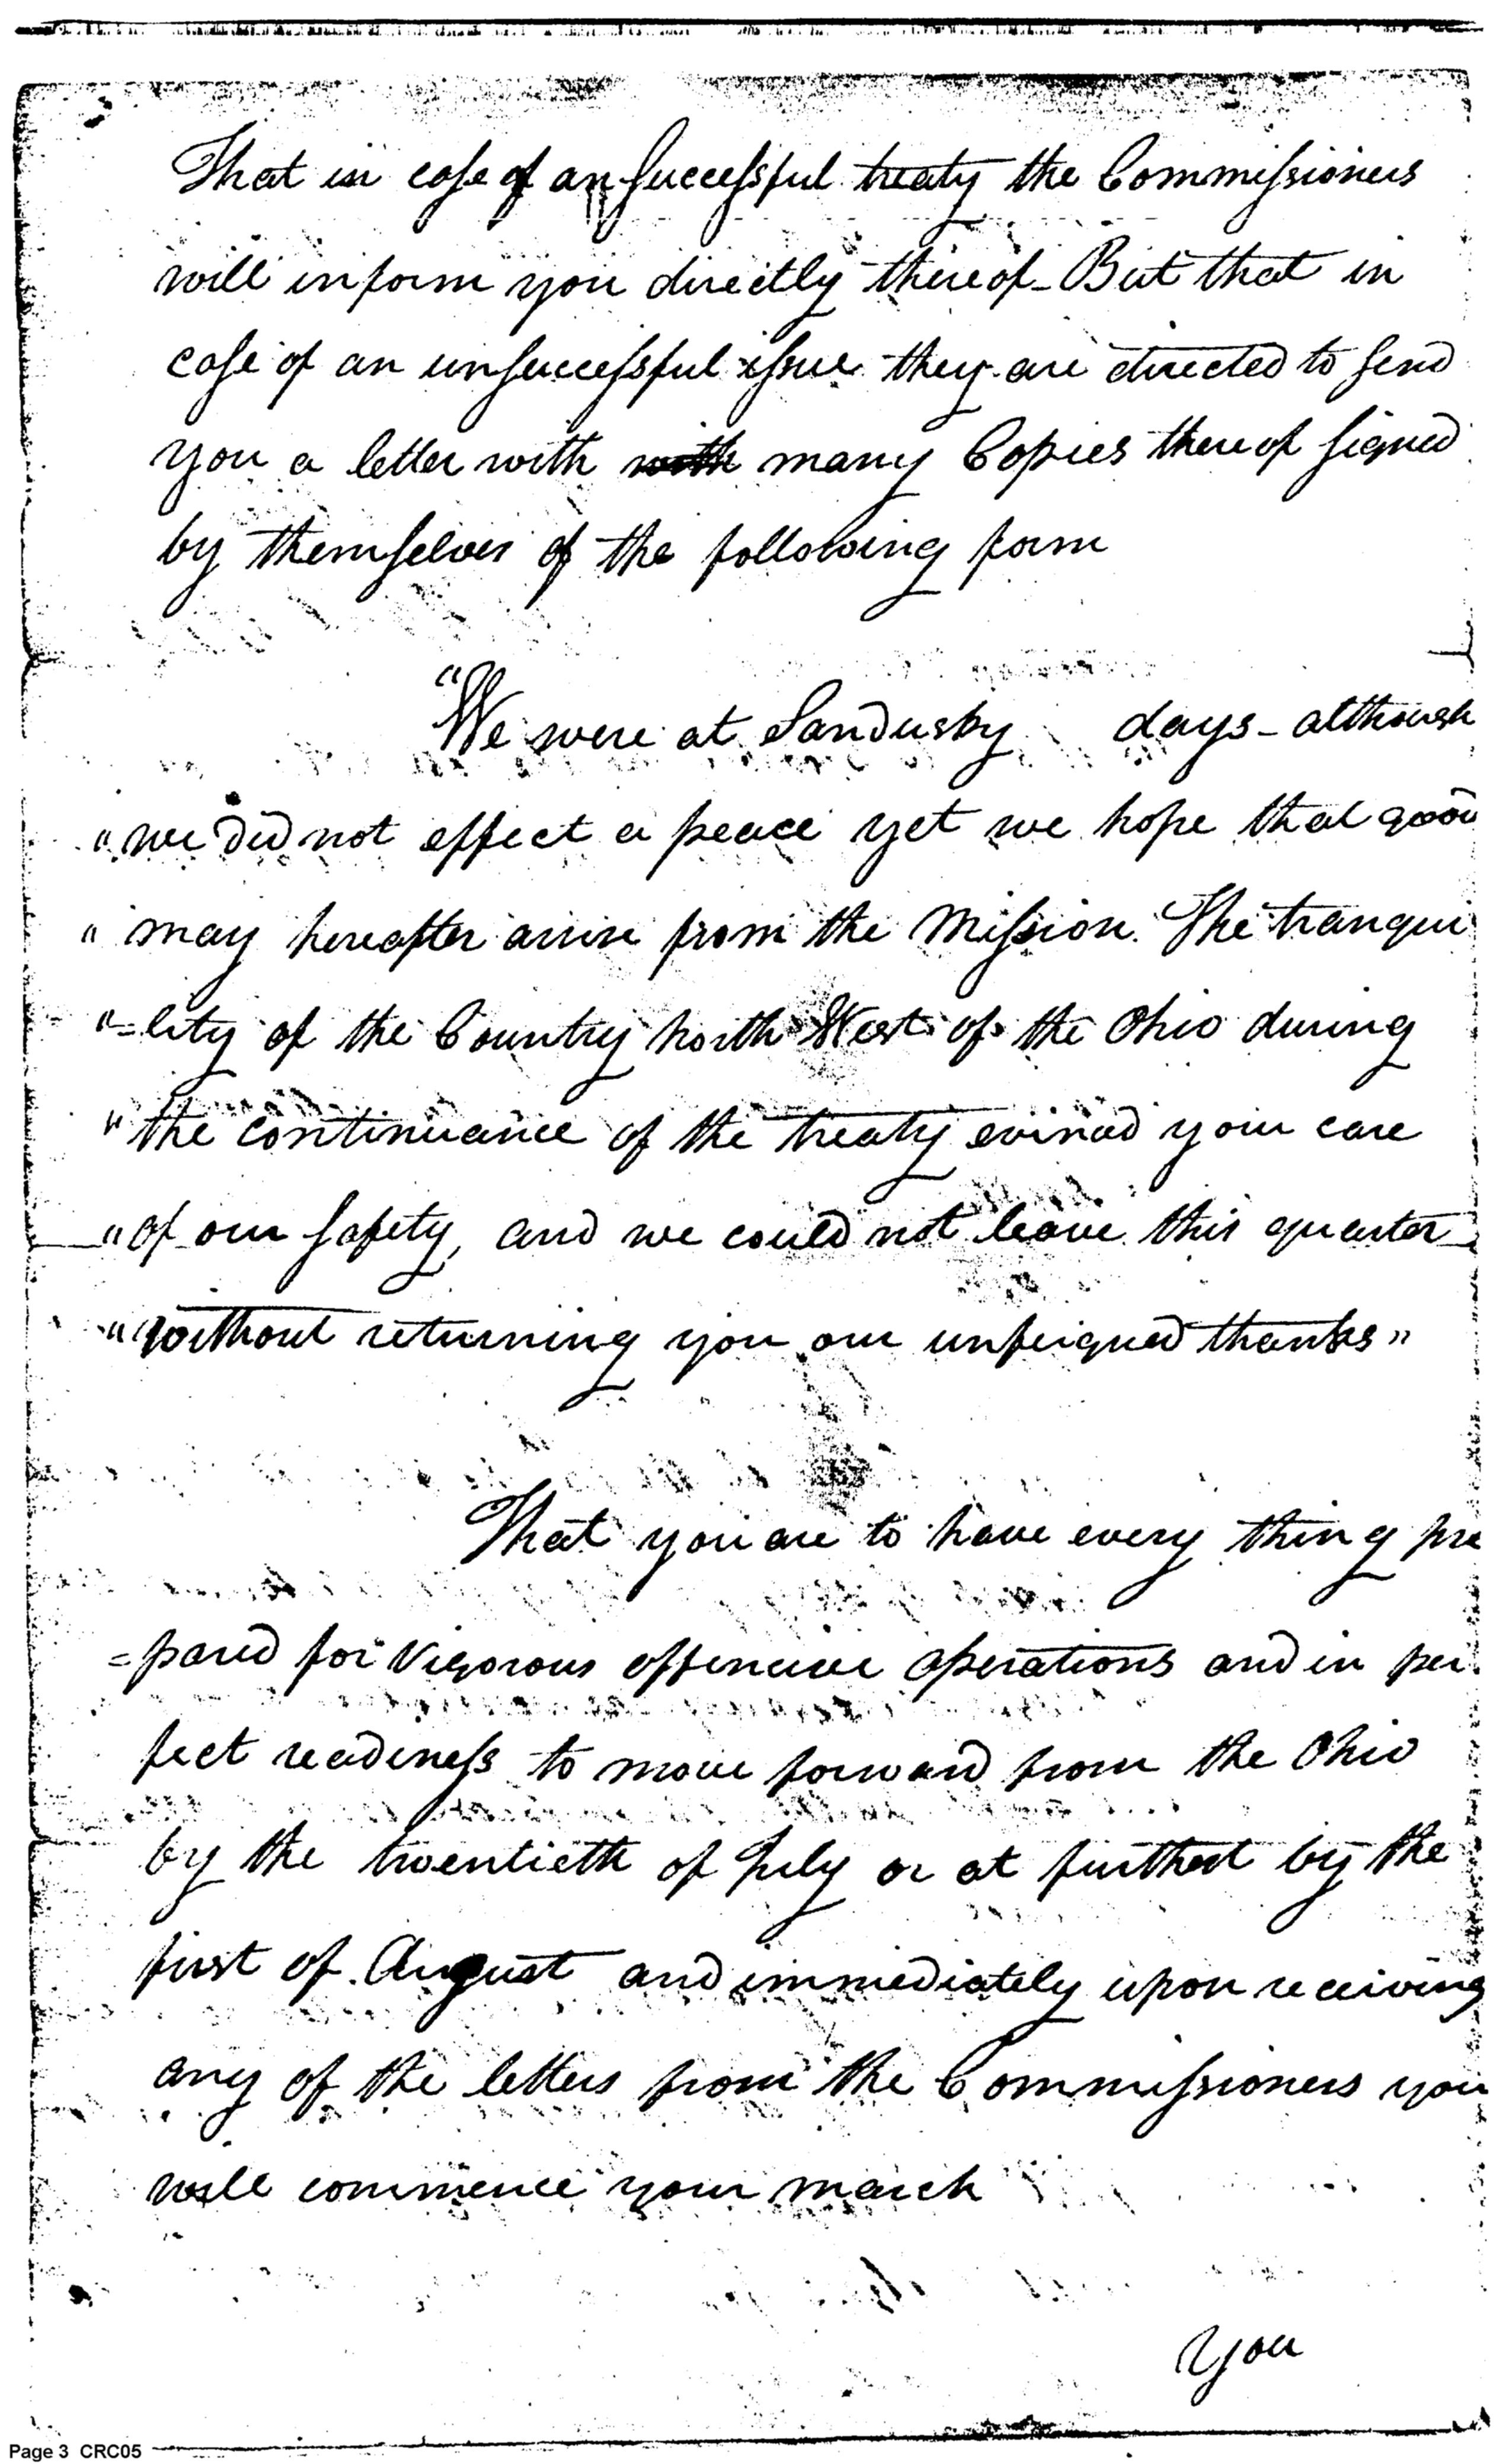 That in case of an successful treaty the Commissioners
will inform you directly thereof_ But that in
case of an unsuccessful issue they are directed to send
you a letter with with many Copies thereof signed
by themselves of the following form
"We were at Sandusky days_ although
"we did not effect a peace yet we hope that good
"may hereafter arise from the Mission. The tranqui
"=lity of the Country North West of the Ohio during
"the continuance of the treaty evinced your care
"of our safety, and we could not leave this quarter
"without returning you our unfeigned thanks"
That you are to have every thing pre
=pared for vigorous offensive operations and in per
fect readiness to move forward from the Ohio
by the twentieth of July or at furthest by the
first of August and immediately upon receiving
any of the letters from the Commissioners you
will commence your march
You
Page 3 CRC05